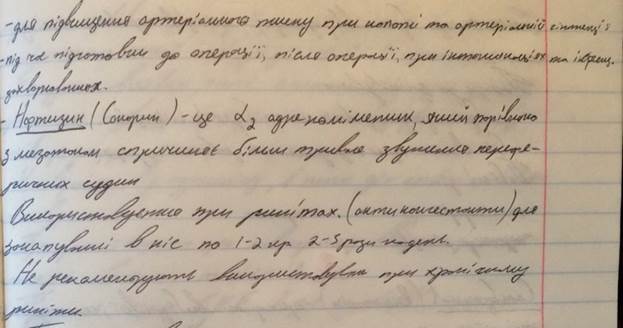 -для підвищення артеріального тиску при колапсі та артеріальній гіпотензії
-під час підготовки до операції, після операції, при інтоксикаціях та інфекц.
захворюваннях.
- Нафтизин (Санорин) - це α2 адреноміметик, який порівняно
з мезатоном спричиняє більш тривале звуження перифе-
ричних судин
Використовується при ринітах. (антиконгестанти) для
закапування в ніс по 1-2 кр. 2-3 рази на день.
Не рекомендують використовувати при хронічному
риніті.